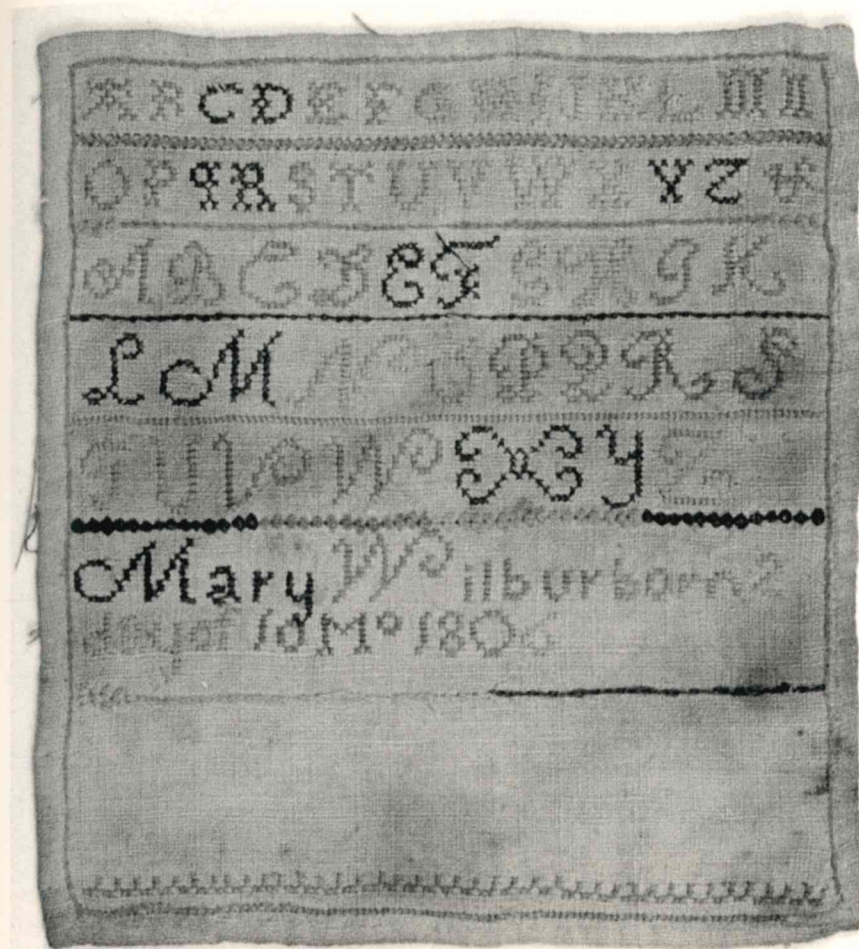 A B C D E F G H I K L M N
O P q R S T U V W X Y Z &
A B C D E F G H I K
L M N O P Q R S
T U V W X Y Z
Mary Wilbur born 2
day of 10 Mo 1806